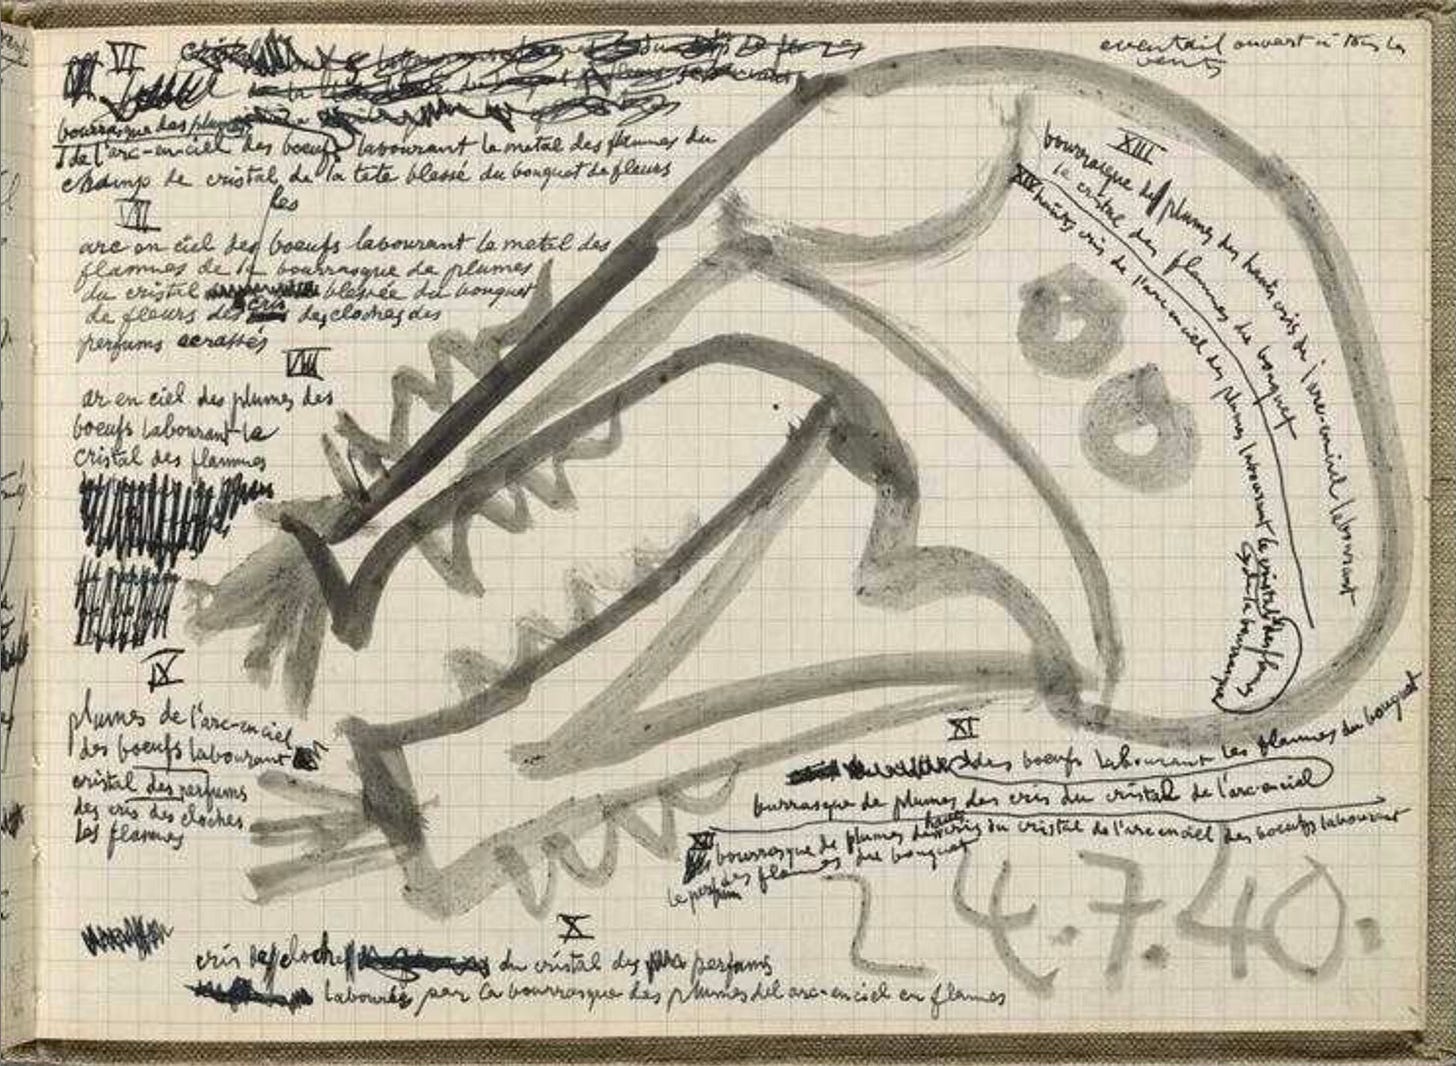 eventail ouvert à tous les
vents
VI
bourrasque des plumes
de l'arc-en-ciel des boeufs labourant le metal des flammes du
champ de cristal de la tete blessé du bouquet de fleurs
VII
les
arc en ciel des boeufs labourant le metal des
flammes de la bourrasque de plumes
du cristal blessée du bouquet
de fleurs des cris des cloches des
perfums ecrassés
VIII
ar en ciel des plumes des
boeufs labourant le
cristal des flammes
IX
plumes de l'arc-en-ciel
des boeufs labourant
cristal des perfums
des cris des cloches
les flammes
X
cris des cloches du cristal des perfums
labourés par la bourrasque des plumes del arc-en-ciel en flames
XI
des boeufs labourant les flammes du bouquet
burrasque de plumes des cris du cristal de l'arc-en-ciel
XII
hauts
bourrasque de plumes des cris du cristal de l'arc en ciel des boeufs labourant
le perfum des flammes du bouquet
XIII
bourrasque des plumes des hauts cris de l'arc-en-ciel labourant
le cristal des flammes du bouquet
XIV
hauts cris de l'arc en ciel des plumes labourant le cristal des flames
de la bourrasque
24.7.40.